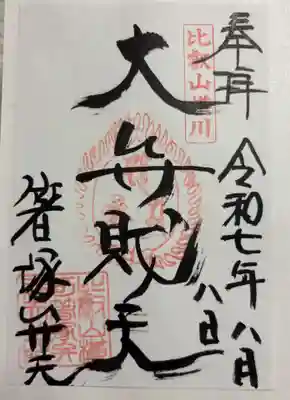 奉拝
令和七年八月
八日
比叡山横川
大弁財天
箸塚弁天